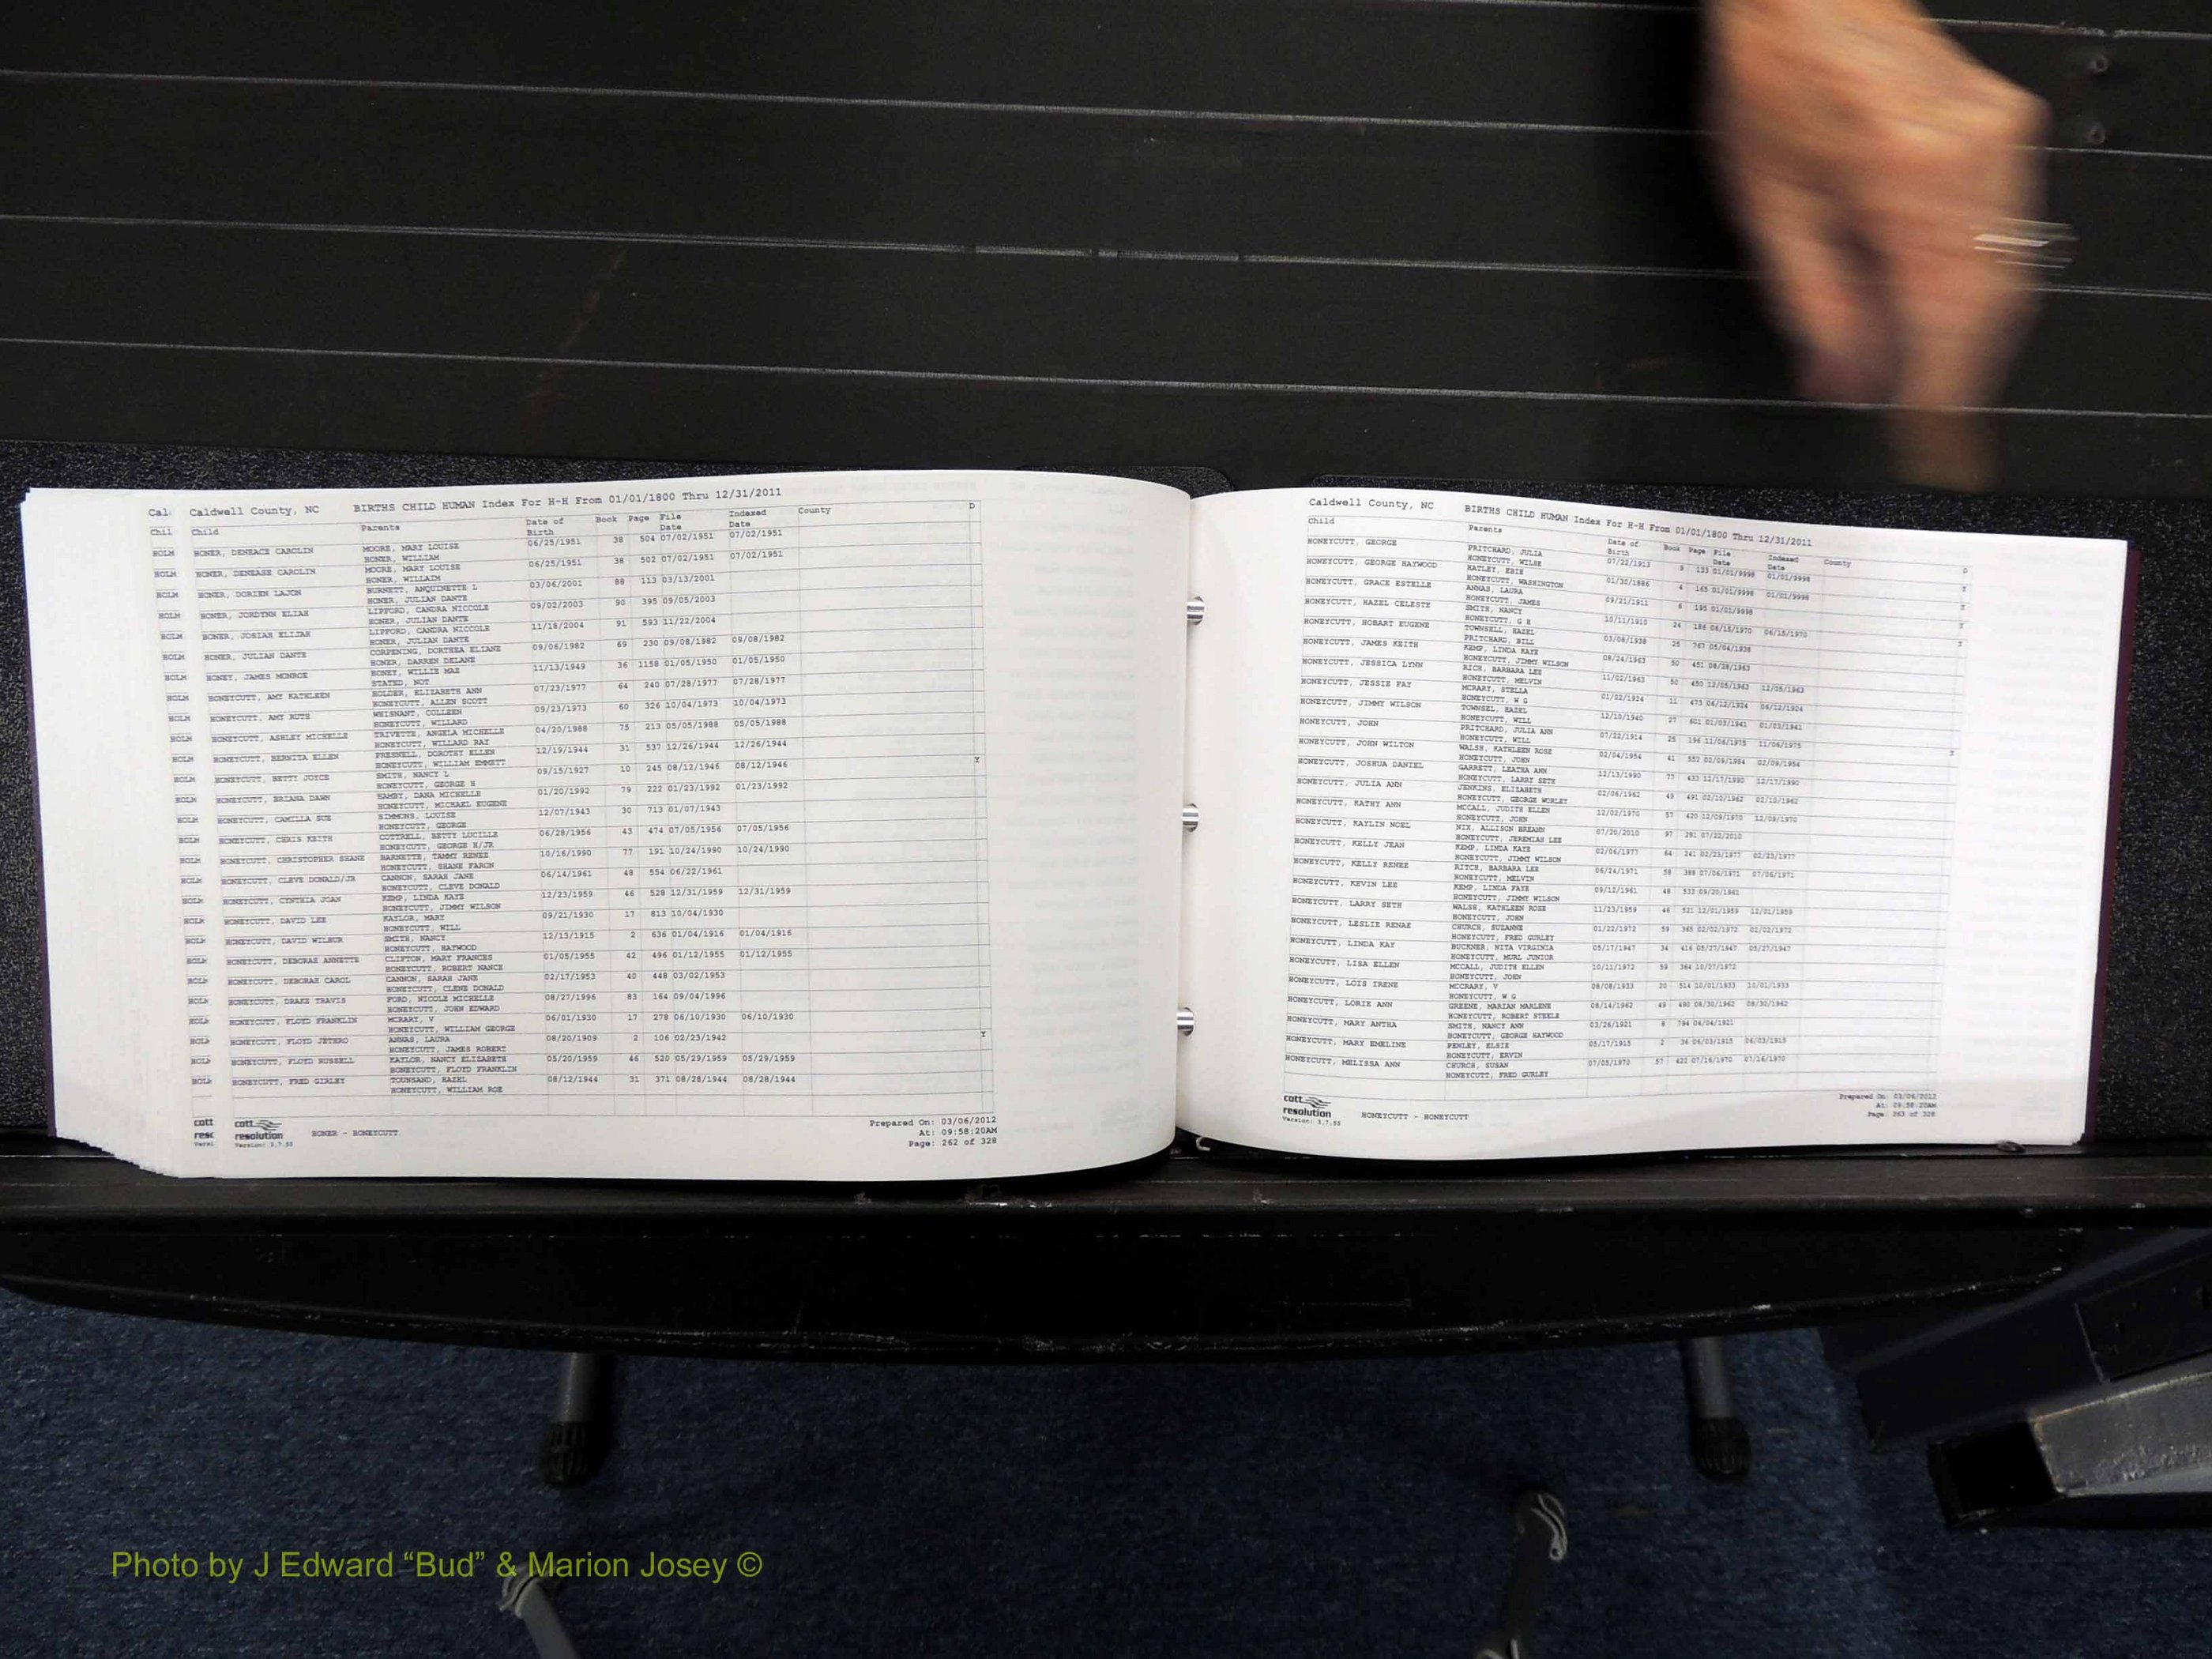 Cal Caldwell County, NC BIRTHS CHILD HUMAN Index For H-H From 01/01/1800 Thru 12/31/2011
Chil Child Parents Date of Birth Book Page File Date Indexed Date County D
HOLM HONER, DENEACE CAROLIN MOORE, MARY LOUISE 06/25/1951 38 504 07/02/1951 07/02/1951
HONER, WILLIAM
HOLM HONER, DENEASE CAROLIN MOORE, MARY LOUISE 06/25/1951 38 502 07/02/1951 07/02/1951
HONER, WILLAIM
HOLM HONER, DORIEN LAJON BURNETT, ANQUINETTE L 03/06/2001 88 113 03/13/2001
HONER, JULIAN DANTE
HOLM HONER, JORDYNN ELIAH LIPFORD, CANDRA NICCOLE 09/02/2003 90 395 09/05/2003
HONER, JULIAN DANTE
HOLM HONER, JOSIAH ELIJAH LIPFORD, CANDRA NICCOLE 11/18/2004 91 593 11/22/2004
HONER, JULIAN DANTE
HOLM HONER, JULIAN DANTE CORPENING, DORTHEA ELIANE 09/06/1982 69 230 09/08/1982 09/08/1982
HONER, DARREN DELANE
HOLM HONEY, JAMES MONROE HONEY, WILLIE MAE 11/13/1949 36 1158 01/05/1950 01/05/1950
STATED, NOT
HOLM HONEYCUTT, AMY KATHLEEN HOLDER, ELIZABETH ANN 07/23/1977 64 240 07/28/1977 07/28/1977
HONEYCUTT, ALLEN SCOTT
HOLM HONEYCUTT, AMY RUTH WHISNANT, COLLEEN 09/23/1973 60 326 10/04/1973 10/04/1973
HONEYCUTT, WILLARD
HOLM HONEYCUTT, ASHLEY MICHELLE TRIVETTE, ANGELA MICHELLE 04/20/1988 75 213 05/05/1988 05/05/1988
HONEYCUTT, WILLARD RAY
HOLM HONEYCUTT, BERNITA ELLEN PRESNELL, DOROTHY ELLEN 12/19/1944 31 537 12/26/1944 12/26/1944
HONEYCUTT, WILLIAM EMMETT
HOLM HONEYCUTT, BETTY JOYCE SMITH, NANCY L 09/15/1927 10 245 08/12/1946 08/12/1946 Y
HONEYCUTT, GEORGE H
HOLM HONEYCUTT, BRIANA DAWN HAMBY, DANA MICHELLE 01/20/1992 79 222 01/23/1992 01/23/1992
HONEYCUTT, MICHAEL EUGENE
HOLM HONEYCUTT, CAMILLA SUE SIMMONS, LOUISE 12/07/1943 30 713 01/07/1943
HONEYCUTT, GEORGE
HOLM HONEYCUTT, CHRIS KEITH COTTRELL, BETTY LUCILLE 06/28/1956 43 474 07/05/1956 07/05/1956
HONEYCUTT, GEORGE H/JR
HOLM HONEYCUTT, CHRISTOPHER SHANE BARNETTE, TAMMY RENEE 10/16/1990 77 191 10/24/1990 10/24/1990
HONEYCUTT, SHANE FARON
HOLM HONEYCUTT, CLEVE DONALD/JR CANNON, SARAH JANE 06/14/1961 48 554 06/22/1961
HONEYCUTT, CLEVE DONALD
HOLM HONEYCUTT, CYNTHIA JOAN KEMP, LINDA KAYE 12/23/1959 46 528 12/31/1959 12/31/1959
HONEYCUTT, JIMMY WILSON
HOLM HONEYCUTT, DAVID LEE KAYLOR, MARY 09/21/1930 17 813 10/04/1930
HONEYCUTT, WILL
HOLM HONEYCUTT, DAVID WILBUR SMITH, NANCY 12/13/1915 2 636 01/04/1916 01/04/1916
HONEYCUTT, HAYWOOD
HOLM HONEYCUTT, DEBORAH ANNETTE CLIFTON, MARY FRANCES 01/05/1955 42 496 01/12/1955 01/12/1955
HONEYCUTT, ROBERT NANCE
HOLM HONEYCUTT, DEBORAH CAROL CANNON, SARAH JANE 02/17/1953 40 448 03/02/1953
HONEYCUTT, CLENE DONALD
HOLM HONEYCUTT, DRAKE TRAVIS FORD, NICOLE MICHELLE 08/27/1996 83 164 09/04/1996
HONEYCUTT, JOHN EDWARD
HOLM HONEYCUTT, FLOYD FRANKLIN MCRARY, V 06/01/1930 17 278 06/10/1930 06/10/1930
HONEYCUTT, WILLIAM GEORGE
HOLM HONEYCUTT, FLOYD JETHRO ANNAS, LAURA 08/20/1909 2 106 02/23/1942 Y
HONEYCUTT, JAMES ROBERT
HOLM HONEYCUTT, FLOYD RUSSELL KAYLOR, NANCY ELIZABETH 05/20/1959 46 520 05/29/1959 05/29/1959
HONEYCUTT, FLOYD FRANKLIN
HOLM HONEYCUTT, FRED GIRLEY TOUNSAND, HAZEL 08/12/1944 31 371 08/28/1944 08/28/1944
HONEYCUTT, WILLIAM ROE
cott cott
resc resolution HONER - HONEYCUTT
Versi Version: 3.7.55
Prepared On: 03/06/2012
At: 09:58:20AM
Page: 262 of 328
Caldwell County, NC BIRTHS CHILD HUMAN Index For H-H From 01/01/1800 Thru 12/31/2011
Child Parents Date of Birth Book Page File Date Indexed Date County D
HONEYCUTT, GEORGE PRITCHARD, JULIA 07/22/1913 9 133 01/01/9998 01/01/9998 Y
HONEYCUTT, WILSE
HONEYCUTT, GEORGE HAYWOOD HATLEY, EBIE 01/30/1886 4 165 01/01/9998 01/01/9998 Y
HONEYCUTT, WASHINGTON
HONEYCUTT, GRACE ESTELLE ANNAS, LAURA 09/21/1911 6 195 01/01/9998 Y
HONEYCUTT, JAMES
HONEYCUTT, HAZEL CELESTE SMITH, NANCY 10/11/1910 24 186 06/15/1970 06/15/1970 Y
HONEYCUTT, G H
HONEYCUTT, HOBART EUGENE TOWNSELL, HAZEL 03/08/1938 25 767 05/04/1938
PRITCHARD, BILL
HONEYCUTT, JAMES KEITH KEMP, LINDA KAYE 08/24/1963 50 451 08/28/1963
HONEYCUTT, JIMMY WILSON
HONEYCUTT, JESSICA LYNN RICH, BARBARA LEE 11/02/1963 50 450 12/05/1963 12/05/1963
HONEYCUTT, MELVIN
HONEYCUTT, JESSIE FAY MCRARY, STELLA 01/02/1924 11 473 06/12/1924 06/12/1924
HONEYCUTT, W G
HONEYCUTT, JIMMY WILSON TOWNSEL, HAZEL 12/10/1940 27 801 01/03/1941 01/03/1941
HONEYCUTT, WILL
HONEYCUTT, JOHN PRITCHARD, JULIA ANN 07/22/1914 25 196 11/06/1975 11/06/1975 Y
HONEYCUTT, WILL
HONEYCUTT, JOHN WILTON WALSH, KATHLEEN ROSE 02/04/1954 41 552 02/09/1954 02/09/1954
HONEYCUTT, JOHN
HONEYCUTT, JOSHUA DANIEL GARRETT, LEATHA ANN 12/13/1990 77 433 12/17/1990 12/17/1990
HONEYCUTT, LARRY SETH
HONEYCUTT, JULIA ANN JENKINS, ELIZABETH 02/06/1962 49 491 02/10/1962 02/10/1962
HONEYCUTT, GEORGE WORLEY
HONEYCUTT, KATHY ANN MCCALL, JUDITH ELLEN 12/02/1970 57 420 12/09/1970 12/09/1970
HONEYCUTT, JOHN
HONEYCUTT, KAYLIN NOEL NIX, ALLISON BREANN 07/20/2010 97 281 07/22/2010
HONEYCUTT, JEREMIAH LEE
HONEYCUTT, KELLY JEAN KEMP, LINDA KAYE 02/06/1977 64 241 02/23/1977 02/23/1977
HONEYCUTT, JIMMY WILSON
HONEYCUTT, KELLY RENEE RITCH, BARBARA LEE 06/24/1971 58 388 07/06/1971 07/06/1971
HONEYCUTT, MELVIN
HONEYCUTT, KEVIN LEE KEMP, LINDA FAYE 09/12/1961 48 533 09/20/1961
HONEYCUTT, JIMMY WILSON
HONEYCUTT, LARRY SETH WALSH, KATHLEEN ROSE 11/23/1959 46 521 12/01/1959 12/01/1959
HONEYCUTT, JOHN
HONEYCUTT, LESLIE RENAE CHURCH, SUZANNE 01/22/1972 59 365 02/02/1972 02/02/1972
HONEYCUTT, FRED GURLEY
HONEYCUTT, LINDA KAY BUCKNER, NITA VIRGINIA 05/17/1947 34 416 05/27/1947 05/27/1947
HONEYCUTT, MURL JUNIOR
HONEYCUTT, LISA ELLEN MCCALL, JUDITH ELLEN 10/11/1972 59 364 10/27/1972
HONEYCUTT, JOHN
HONEYCUTT, LOIS IRENE MCCRARY, V 08/08/1933 20 514 10/01/1933 10/01/1933
HONEYCUTT, W G
HONEYCUTT, LORIE ANN GREENE, MARIAN MARLENE 08/14/1962 49 490 08/30/1962 08/30/1962
HONEYCUTT, ROBERT STEELE
HONEYCUTT, MARY ANTHA SMITH, NANCY ANN 03/26/1921 8 794 04/04/1921
HONEYCUTT, GEORGE HAYWOOD
HONEYCUTT, MARY EMELINE PENLEY, ELSIE 05/17/1915 2 36 06/03/1915 06/03/1915
HONEYCUTT, ERVIN
HONEYCUTT, MELISSA ANN CHURCH, SUSAN 07/05/1970 57 422 07/16/1970 07/16/1970
HONEYCUTT, FRED GURLEY
cott
resolution HONEYCUTT - HONEYCUTT
Version: 3.7.55
Prepared On: 03/06/2012
At: 09:58:20AM
Page: 263 of 328
Photo by J Edward “Bud” & Marion Josey ©